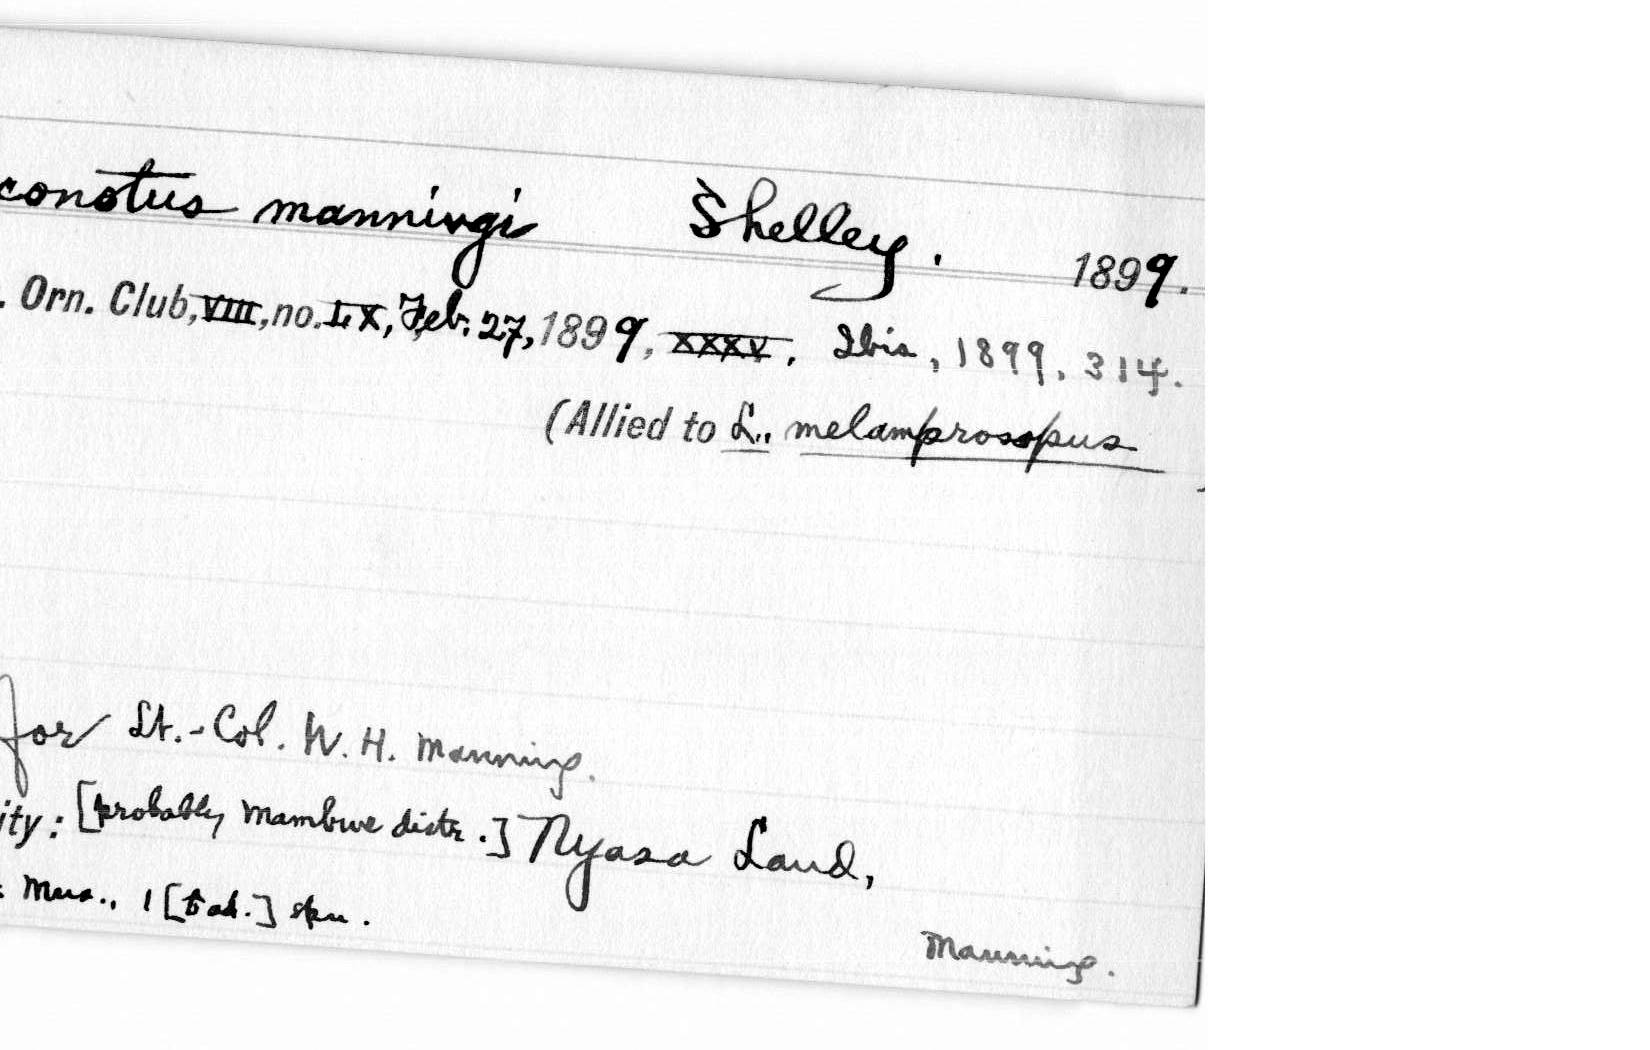 conotus manningi Shelley. 1899.
. Orn. Club, VIII, no. LX, Feb. 27, 1899, XXXV. Ibis, 1899, 314.
(Allied to L. melamprosopus
)
for Lt.-Col. W. H. Manning.
ity: [probably Mambwe distr.] Nyasa Land,
Mus., 1 [ad.] spm.
Manning.